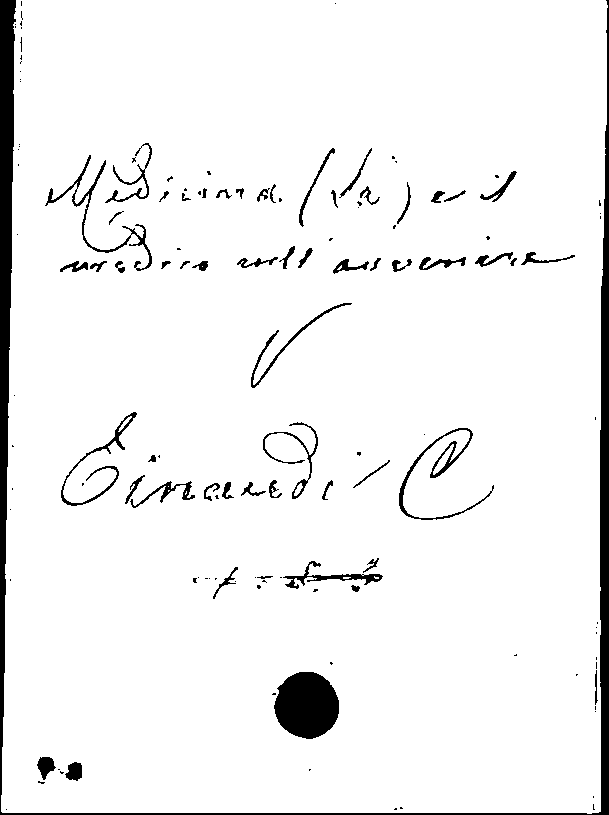 Medicina (La) e il
medico nell'avvenire
V
Einaudi C